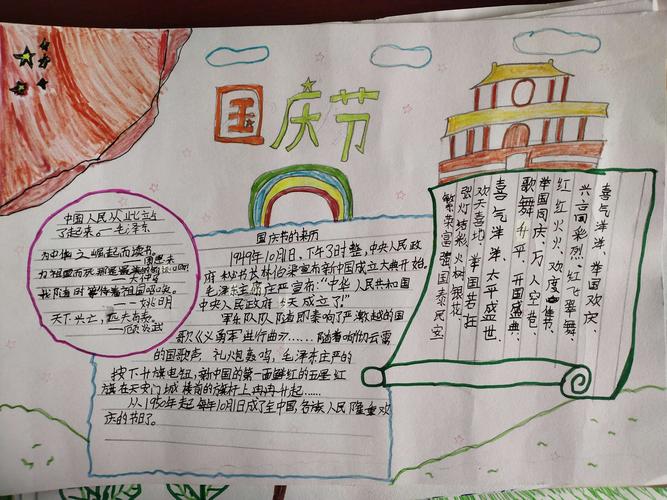 国庆节
中国人民从此站
了起来。—毛泽东
为中华之崛起而读书。
—周恩来
—姚明
天下兴亡，匹夫有责。
—顾炎武
国庆节的来历
1949年10月1日、下午3时整,中央人民政
府秘书长林伯渠宣布新中国成立大典开始。
毛泽东主席庄严宣布:“中华人民共和国
中央人民政府今天成立了!”
军乐队队随即奏响了严激越的国
歌《义勇军进行曲》……随着响彻云霄
的国歌声、礼炮轰鸣,毛泽东庄严的
按下升旗电钮,新中国的第一面鲜红的五星红
旗在天安门城楼前的旗杆上冉冉升起……
从1950年起每年10月1日成了全中国,各族人民隆重欢
庆的节日了。
喜气洋洋、举国欢庆、
兴高彩烈、红飞翠舞、
红红火火、欢度佳节、
举国同庆、万人空巷、
歌舞升平、开国盛典、
喜气洋洋、太平盛世、
欢天喜地、举国若狂、
张灯结彩、火树银花、
繁荣富强国泰民安